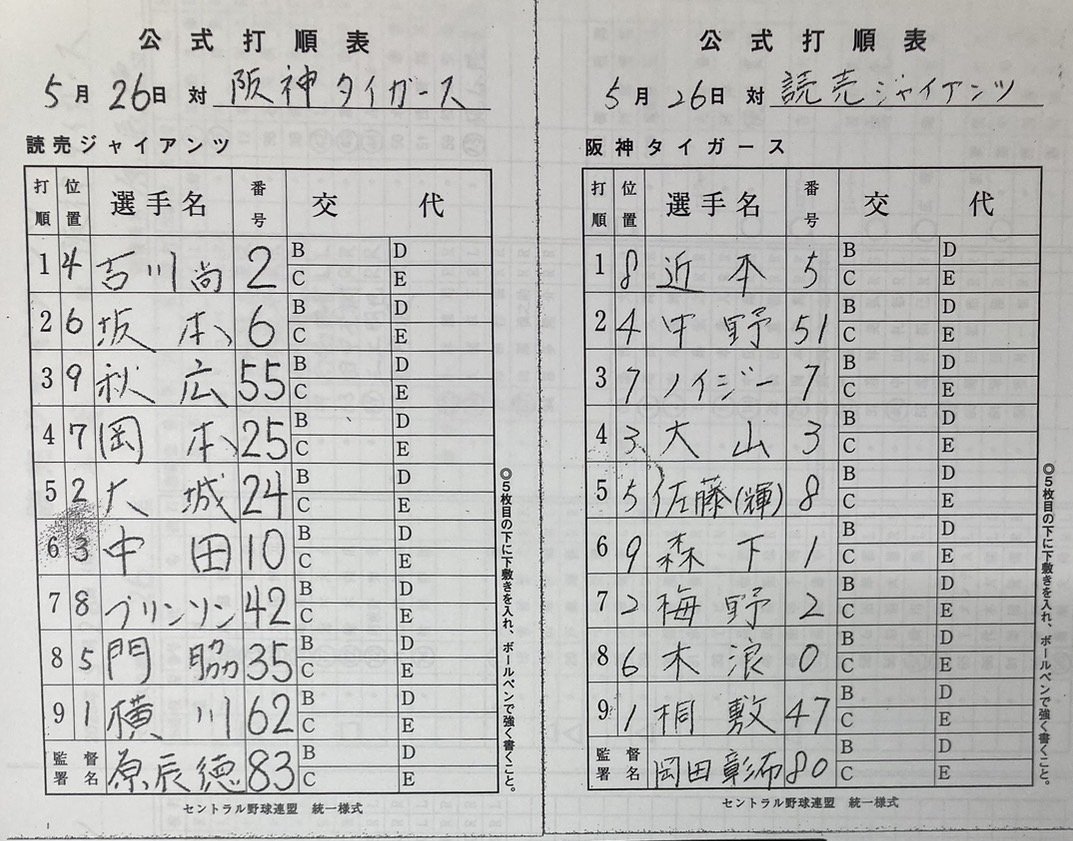 公式打順表
5月26日 対 阪神タイガース
読売ジャイアンツ
打順 位置 選手名 番号 交代
1 4 吉川尚 2 B D C E
2 6 坂本 6 B D C E
3 9 秋広 55 B D C E
4 7 岡本 25 B D C E
5 2 大城 24 B D C E
6 3 中田 10 B D C E
7 8 ブリンソン 42 B D C E
8 5 門脇 35 B D C E
9 1 横川 62 B D C E
監督署名 原辰徳 83 B D C E
◎5枚目の下に下敷きを入れ、ボールペンで強く書くこと。
セントラル野球連盟 統一様式
公式打順表
5月26日 対 読売ジャイアンツ
阪神タイガース
打順 位置 選手名 番号 交代
1 8 近本 5 B D C E
2 4 中野 51 B D C E
3 7 ノイジー 7 B D C E
4 3 大山 3 B D C E
5 5 佐藤(輝) 8 B D C E
6 9 森下 1 B D C E
7 2 梅野 2 B D C E
8 6 木浪 0 B D C E
9 1 桐敷 47 B D C E
監督署名 岡田彰布 80 B D C E
◎5枚目の下に下敷きを入れ、ボールペンで強く書くこと。
セントラル野球連盟 統一様式